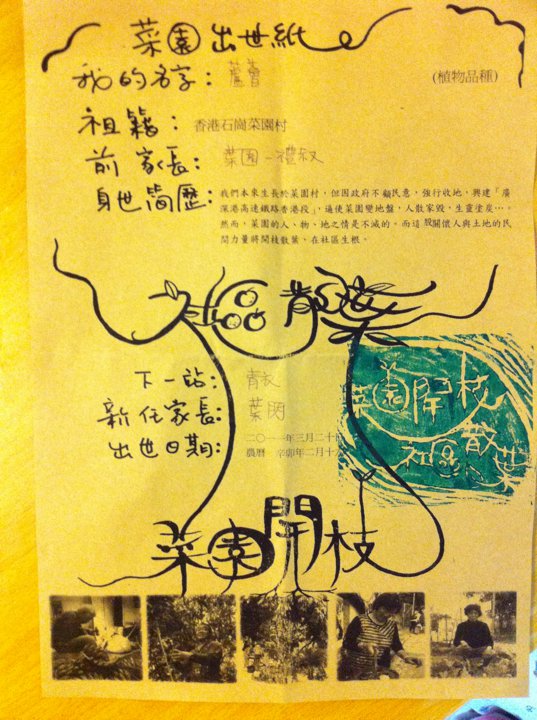 菜園出世紙
我的名字：蘆薈 (植物品種)
祖籍：香港石崗菜園村
前家長：菜園－禮叔
身世簡歷：我們本來生長於菜園村，但因政府不顧民意，強行收地，興建「廣
深港高速鐵路香港段」，逼使菜園變地盤，人散家毀，生靈塗炭…。
然而，菜園的人、物、地之情是不滅的。而這股關懷人與土地的民
間力量將開枝散葉，在社區生根。
社區散葉
下一站：青衣
新任家長：葉
出世日期：二〇一一年三月二十
農曆 辛卯年二月十
菜園開枝
社區散葉
菜園開枝